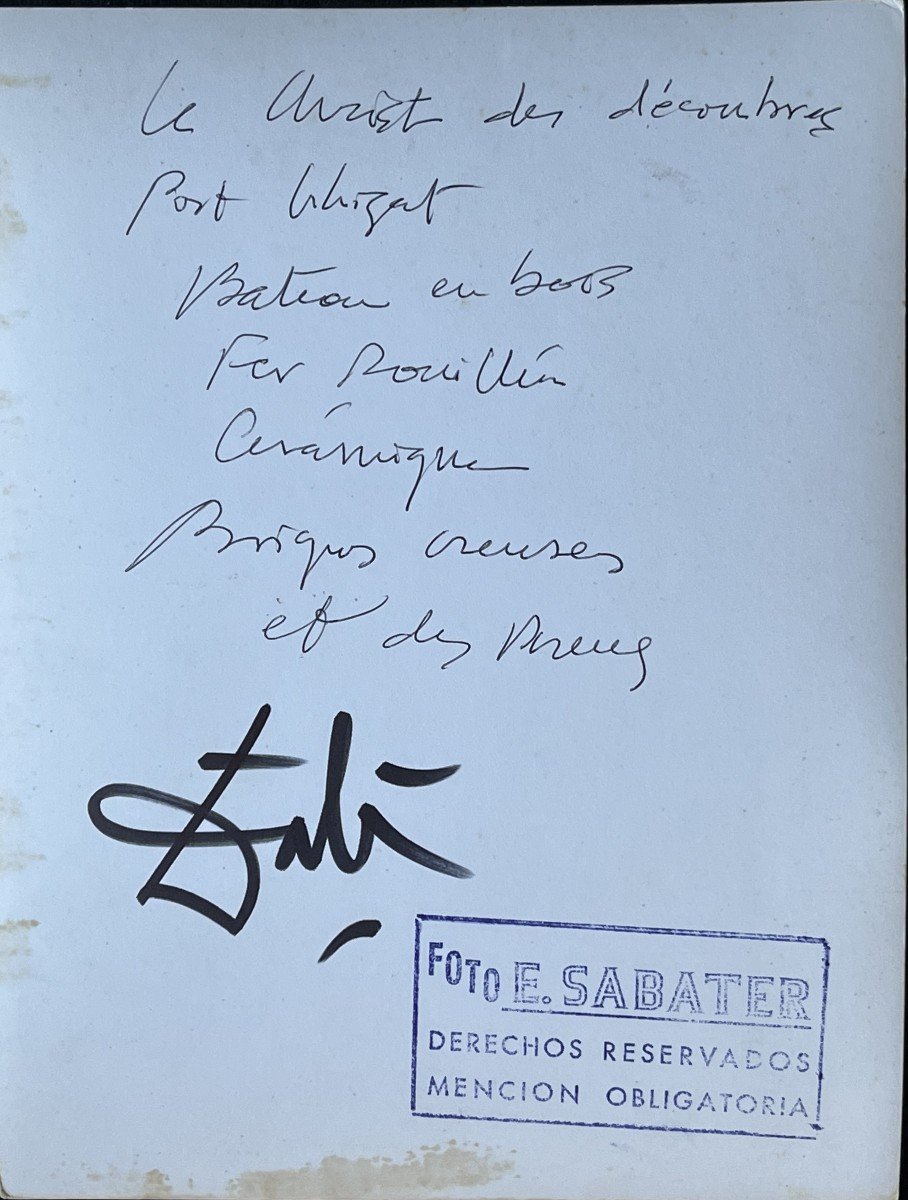 Le Christ des décombres
Port lligat
Bateau en bois
Fer Rouillée
Cerámique
Briques creuses
et des Pneus
Dalí
FOTO E. SABATER
DERECHOS RESERVADOS
MENCION OBLIGATORIA